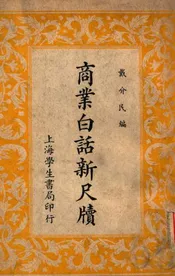 戴介民編
商業白話新尺牘
上海學生書局印行